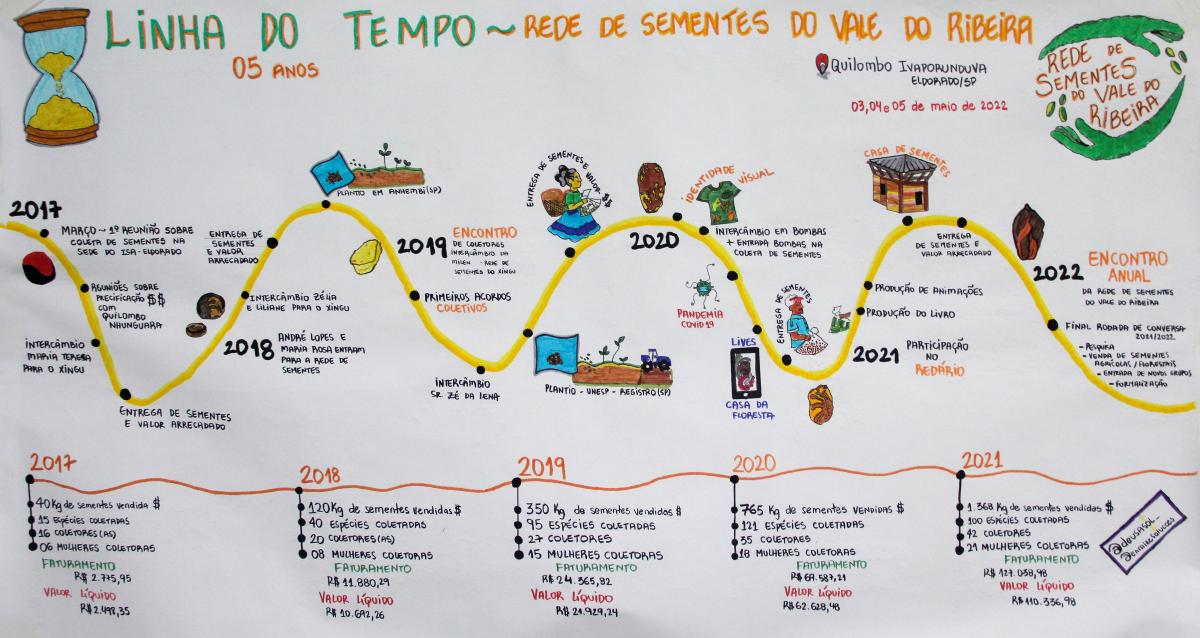 LINHA DO TEMPO ~ REDE DE SEMENTES DO VALE DO RIBEIRA
05 ANOS
QUILOMBO IVAPORUNDUVA
ELDORADO/SP
03, 04 e 05 de maio de 2022
REDE DE
SEMENTES
DO VALE DO
RIBEIRA
2017
MARÇO ~ 1º REUNIÃO SOBRE
COLETA DE SEMENTES NA
SEDE DO ISA-ELDORADO
REUNIÕES SOBRE
PRECIFICAÇÃO $$
COM
QUILOMBO
NHUNGUARA
INTERCÂMBIO
MARIA TEREZA
PARA O XINGU
ENTREGA DE SEMENTES
E VALOR ARRECADADO
2018
ANDRÉ LOPES E
MARIA ROSA ENTRAM
PARA A REDE DE
SEMENTES
INTERCÂMBIO ZÉLIA
E LILIANE PARA O XINGU
ENTREGA DE
SEMENTES
E VALOR
ARRECADADO
PLANTIO EM ANHEMBI (SP)
2019
ENCONTRO
DE COLETORES
INTERCÂMBIO DA
MILENE - REDE DE
SEMENTES DO XINGU
PRIMEIROS ACORDOS
COLETIVOS
INTERCÂMBIO
SR. ZÉ DA LENA
PLANTIO - UNESP - REGISTRO (SP)
ENTREGA DE SEMENTES E VALOR $$
2020
IDENTIDADE VISUAL
INTERCÂMBIO EM BOMBAS
+ ENTRADA BOMBAS NA
COLETA DE SEMENTES
PANDEMIA
COVID 19
LIVES
CASA DA
FLORESTA
ENTREGA DE SEMENTES
2021
PARTICIPAÇÃO
NO
REDÁRIO
PRODUÇÃO DO LIVRO
PRODUÇÃO DE ANIMAÇÕES
CASA DE SEMENTES
ENTREGA
DE SEMENTES E
VALOR ARRECADADO
2022
ENCONTRO
ANUAL
DA REDE DE SEMENTES
DO VALE DO RIBEIRA
FINAL RODADA DE CONVERSA
2021/2022
- PESQUISA
- VENDA DE SEMENTES
AGRÍCOLAS/FLORESTAIS
- ENTRADA DE NOVOS GRUPOS
- FORMALIZAÇÃO
2017
40 Kg de sementes vendida $
15 ESPÉCIES COLETADAS
16 COLETORES(AS)
06 MULHERES COLETORAS
FATURAMENTO
R$ 2.775,95
VALOR LÍQUIDO
R$ 2.498,35
2018
120 Kg de sementes vendidas $
40 ESPÉCIES COLETADAS
20 COLETORES(AS)
08 MULHERES COLETORAS
FATURAMENTO
R$ 11.880,29
VALOR LÍQUIDO
R$ 10.692,26
2019
350 Kg de sementes vendidos $
95 ESPÉCIES COLETADAS
27 COLETORES
15 MULHERES COLETORAS
FATURAMENTO
R$ 24.365,82
VALOR LÍQUIDO
R$ 21.929,24
2020
765 Kg DE SEMENTES VENDIDAS $
121 ESPÉCIES COLETADAS
35 COLETORES
18 MULHERES COLETORAS
FATURAMENTO
R$ 69.587,21
VALOR LÍQUIDO
R$ 62.628,48
2021
1.368 Kg de sementes vendidos $
100 ESPÉCIES COLETADAS
42 COLETORES
21 MULHERES COLETORAS
FATURAMENTO
R$ 127.038,98
VALOR LÍQUIDO
R$ 110.336,98
@deusasol_